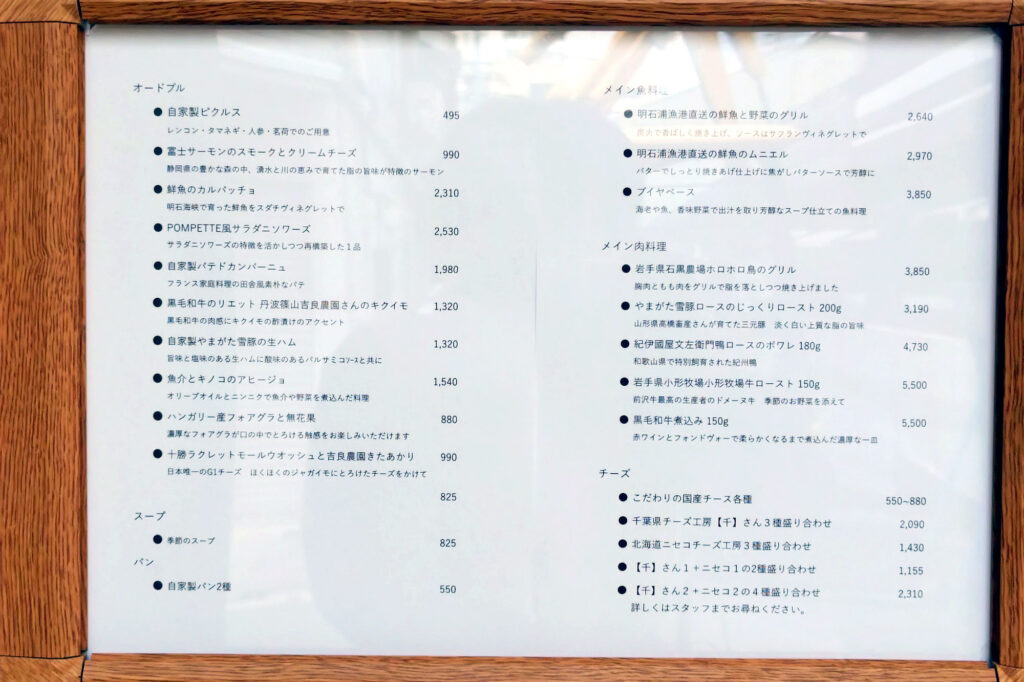 オードブル
● 自家製ピクルス 495
レンコン・タマネギ・人参・茗荷でのご用意
● 富士サーモンのスモークとクリームチーズ 990
静岡県の豊かな森の中、湧水と川の恵みで育てた脂の旨味が特徴のサーモン
● 鮮魚のカルパッチョ 2,310
明石海峡で育った鮮魚をスダチヴィネグレットで
● POMPETTE風サラダニソワーズ 2,530
サラダニソワーズの特徴を活かしつつ再構築した1品
● 自家製パテドカンパーニュ 1,980
フランス家庭料理の田舎風素朴なパテ
● 黒毛和牛のリエット 丹波篠山吉良農園さんのキクイモ 1,320
黒毛和牛の肉感にキクイモの酢漬けのアクセント
● 自家製やまがた雪豚の生ハム 1,320
旨味と塩味のある生ハムに酸味のあるバルサミコソースと共に
● 魚介とキノコのアヒージョ 1,540
オリーブオイルとニンニクで魚介や野菜を煮込んだ料理
● ハンガリー産フォアグラと無花果 880
濃厚なフォアグラが口の中でとろける触感をお楽しみいただけます
● 十勝ラクレットモールウオッシュと吉良農園きたあかり 990
日本唯一のG1チーズ　ほくほくのジャガイモにとろけたチーズをかけて
825
スープ
● 季節のスープ 825
パン
● 自家製パン2種 550
メイン魚料理
● 明石浦漁港直送の鮮魚と野菜のグリル 2,640
炭火で香ばしく焼き上げ、ソースはサフランヴィネグレットで
● 明石浦漁港直送の鮮魚のムニエル 2,970
バターでしっとり焼きあげ仕上げに焦がしバターソースで芳醇に
● ブイヤベース 3,850
海老や魚、香味野菜で出汁を取り芳醇なスープ仕立ての魚料理
メイン肉料理
● 岩手県石黒農場ホロホロ鳥のグリル 3,850
胸肉ともも肉をグリルで脂を落としつつ焼き上げました
● やまがた雪豚ロースのじっくりロースト 200g 3,190
山形県高橋畜産さんが育てた三元豚　淡く白い上質な脂の旨味
● 紀伊國屋文左衛門鴨ロースのポワレ 180g 4,730
和歌山県で特別飼育された紀州鴨
● 岩手県小形牧場小形牧場牛ロースト 150g 5,500
前沢牛最高の生産者のドメーヌ牛　季節のお野菜を添えて
● 黒毛和牛煮込み 150g 5,500
赤ワインとフォンドヴォーで柔らかくなるまで煮込んだ濃厚な一皿
チーズ
● こだわりの国産チース各種 550~880
● 千葉県チーズ工房【千】さん３種盛り合わせ 2,090
● 北海道ニセコチーズ工房３種盛り合わせ 1,430
● 【千】さん１＋ニセコ１の2種盛り合わせ 1,155
● 【千】さん２＋ニセコ２の４種盛り合わせ 2,310
詳しくはスタッフまでお尋ねください。